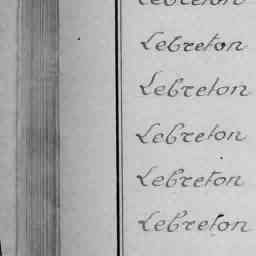 Lebreton
Lebreton
Lebreton
Lebreton
Lebreton
Lebreton